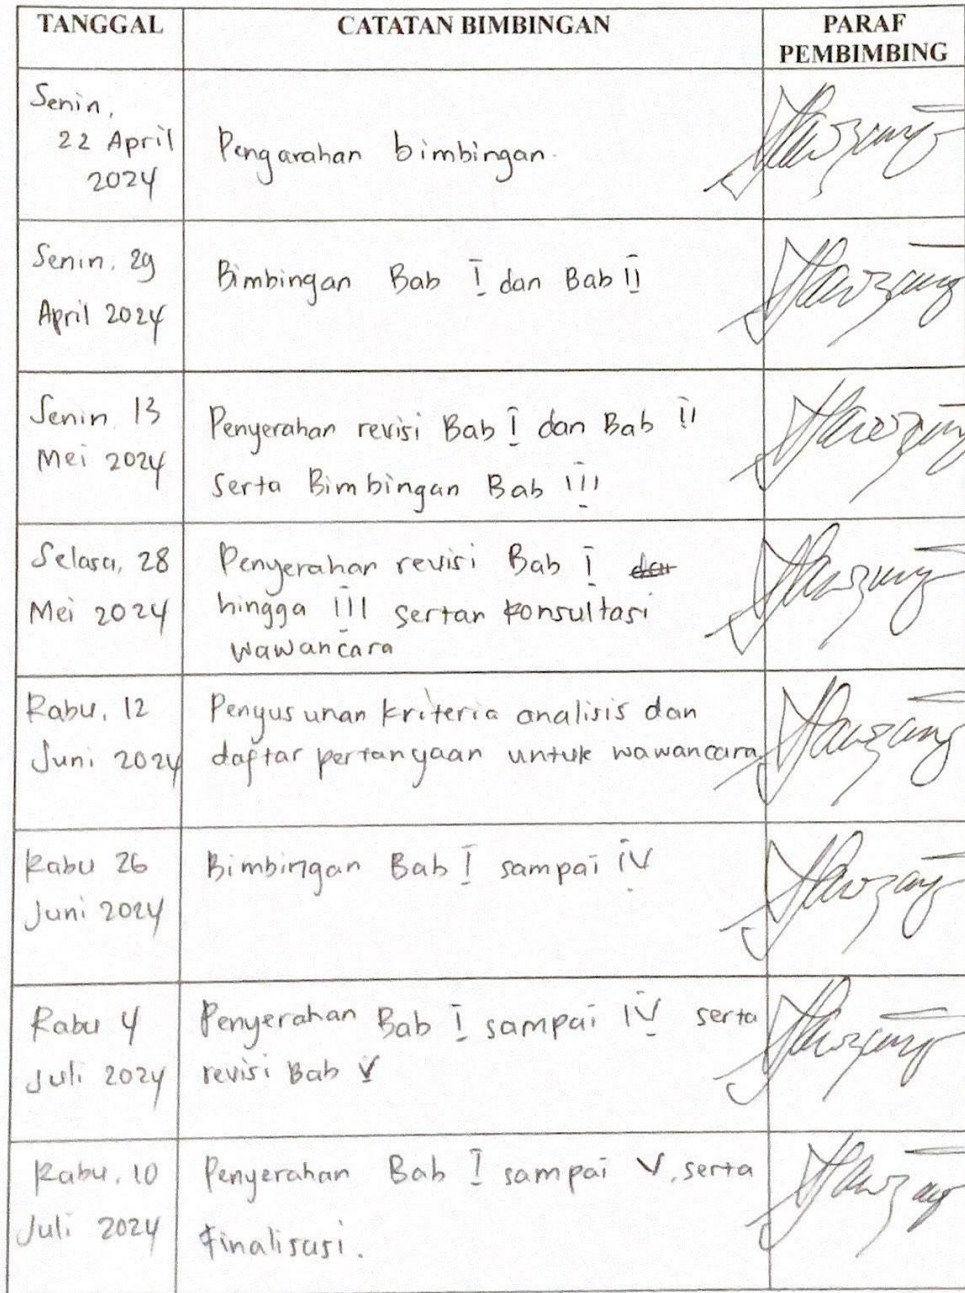 TANGGAL
CATATAN BIMBINGAN
PARAF
PEMBIMBING
Senin,
22 April
2024
Pengarahan bimbingan.
Senin, 29
April 2024
Bimbingan Bab I dan Bab II
Senin, 13
Mei 2024
Penyerahan revisi Bab I dan Bab II
serta Bimbingan Bab III
Selasa, 28
Mei 2024
Penyerahan revisi Bab I dan
hingga III sertan konsultasi
wawancara
Rabu, 12
Juni 2024
Penyusunan kriteria analisis dan
daftar pertanyaan untuk wawancara
Rabu 26
Juni 2024
Bimbingan Bab I sampai IV
Rabu 4
Juli 2024
Penyerahan Bab I sampai IV serta
revisi Bab V
Rabu, 10
Juli 2024
Penyerahan Bab I sampai V, serta
finalisasi.